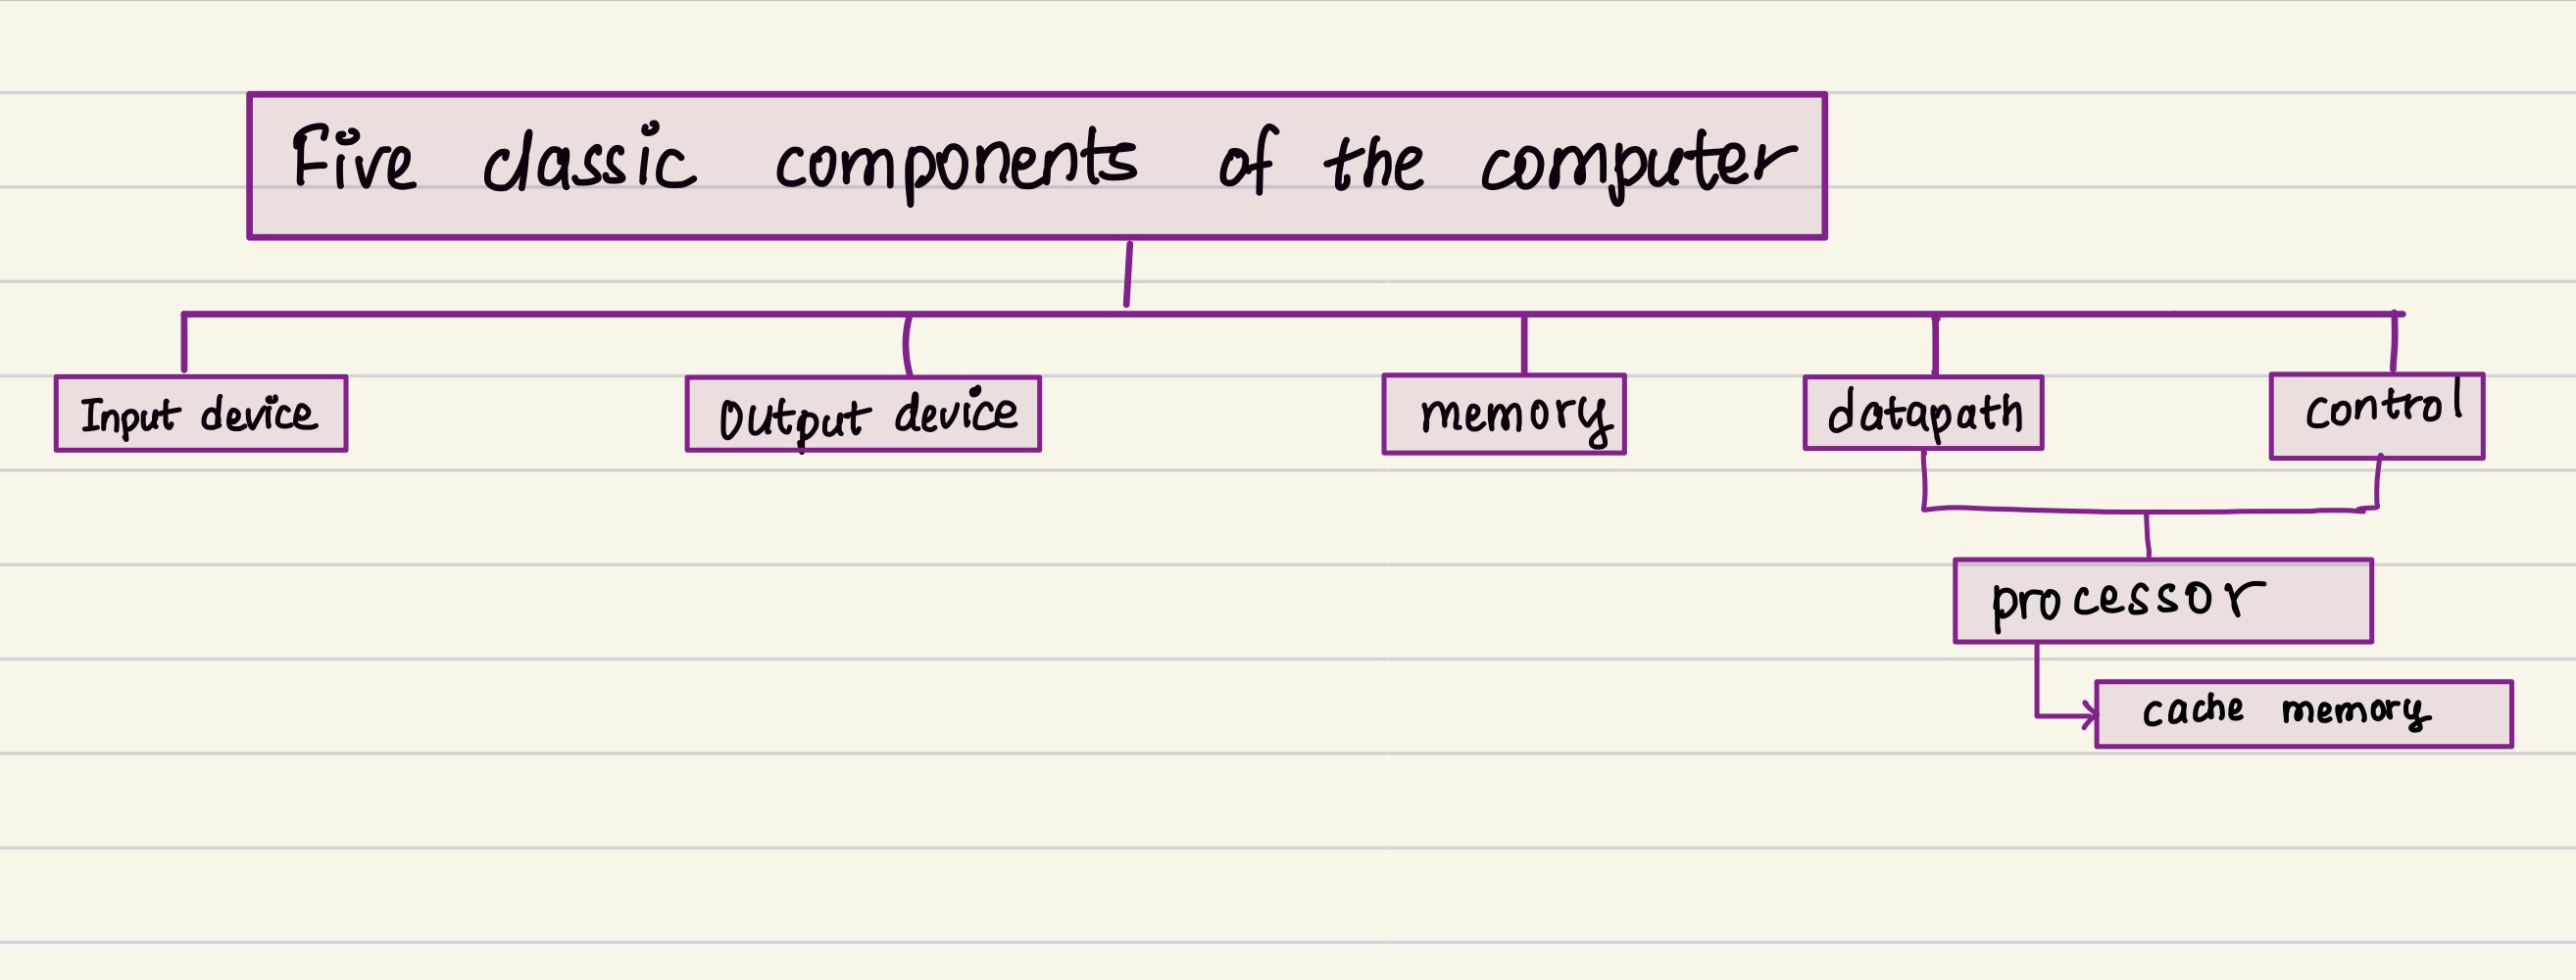 Five classic components of the computer
Input device
Output device
memory
datapath
control
processor
cache memory